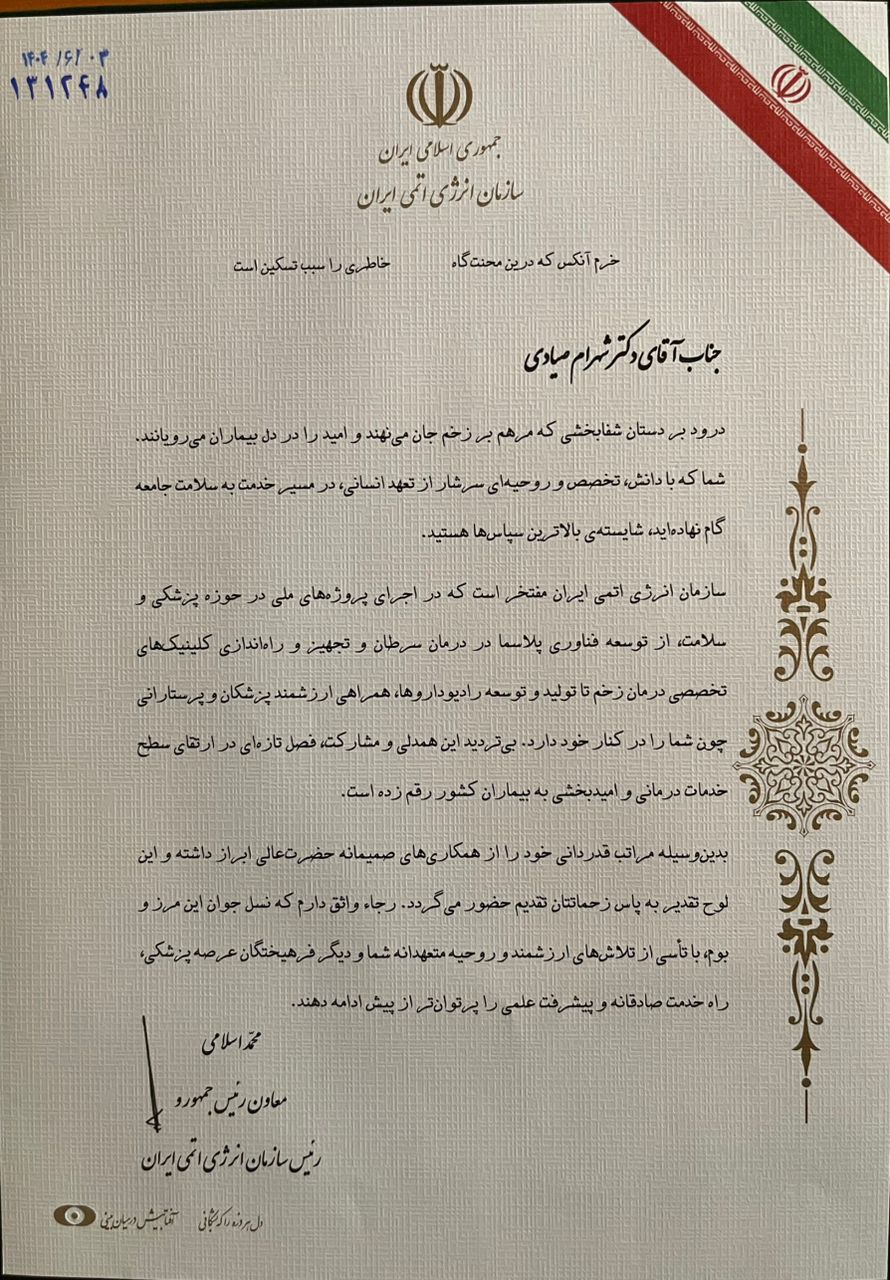 ۱۴۰۴/۶/۰۳
۱۳۱۲۴۸
جمهوری اسلامی ایران
سازمان انرژی اتمی ایران
خرم آنکس که درین محنت‌گاه خاطری را سبب تسکین است
جناب آقای دکتر شهرام صیادی
درود بر دستان شفابخشی که مرهم بر زخم جان می‌نهند و امید را در دل بیماران می‌رویانند.
شما که با دانش، تخصص و روحیه‌ای سرشار از تعهد انسانی، در مسیر خدمت به سلامت جامعه
گام نهاده‌اید، شایسته‌ی بالاترین سپاس‌ها هستید.
سازمان انرژی اتمی ایران مفتخر است که در اجرای پروژه‌های ملی در حوزه پزشکی و
سلامت، از توسعه فناوری پلاسما در درمان سرطان و تجهیز و راه‌اندازی کلینیک‌های
تخصصی درمان زخم تا تولید و توسعه رادیوداروها، همراهی ارزشمند پزشکان و پرستارانی
چون شما را در کنار خود دارد. بی‌تردید این همدلی و مشارکت، فصل تازه‌ای در ارتقای سطح
خدمات درمانی و امیدبخشی به بیماران کشور رقم زده است.
بدین‌وسیله مراتب قدردانی خود را از همکاری‌های صمیمانه حضرت‌عالی ابراز داشته و این
لوح تقدیر به پاس زحماتتان تقدیم حضور می‌گردد. رجاء واثق دارم که نسل جوان این مرز و
بوم، با تأسی از تلاش‌های ارزشمند و روحیه متعهدانه شما و دیگر فرهیختگان عرصه پزشکی،
راه خدمت صادقانه و پیشرفت علمی را پرتوان‌تر از پیش ادامه دهند.
محمّد اسلامی
معاون رئیس جمهور و
رئیس سازمان انرژی اتمی ایران
دل هر ذره را که بشکافی آفتابیش در میان بینی